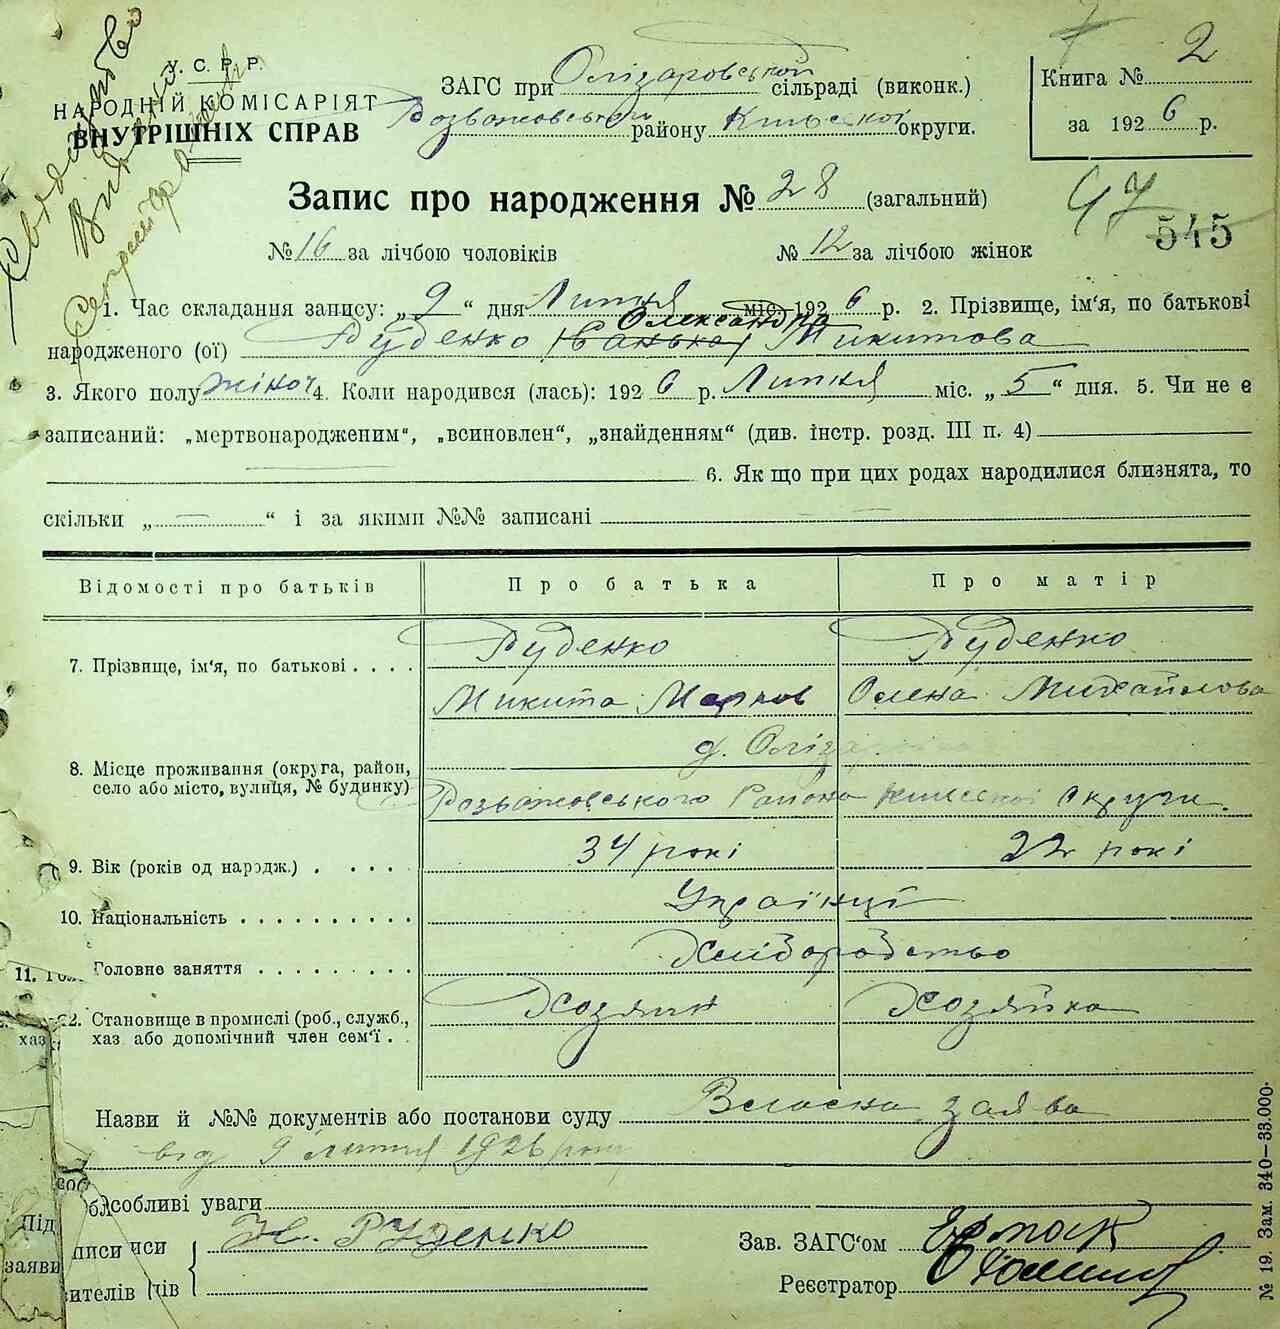 Свідоцтво
Видано
У. С. Р. Р.
НАРОДНІЙ КОМІСАРІЯТ
ВНУТРІШНІХ СПРАВ
ЗАГС при Олізаровській сільраді (виконк.)
Розважовського району Київської округи.
Книга № 2
за 1926 р.
Запис про народження № 28 (загальний)
97
545
№ 16 за лічбою чоловіків № 12 за лічбою жінок
1. Час складання запису: „9“ дня Липня міс. 1926 р. 2. Прізвище, ім‘я, по батькові
Олександра
народженого (ої) Руденко (Ганька) Микитова
3. Якого полу жіноч 4. Коли народився (лась): 1926 р. Липня міс. „5“ дня. 5. Чи не є
записаний: „мертвонародженим“, „всиновлен“, „знайденням“ (див. інстр. розд. III п. 4)
6. Як що при цих родах народилися близнята, то
скільки „ — “ і за якими №№ записані
Відомості про батьків Про батька Про матір
7. Прізвище, ім‘я, по батькові . . . . Руденко Руденко
Микита Марков Олена Михайлова
8. Місце проживання (округа, район,
село або місто, вулиця, № будинку)
Розважовського Района Київської округи.
9. Вік (років од народж.) . . . . . 34 рокі 22 рокі
10. Національність . . . . . . . . . . Українці
11. Головне заняття . . . . . . . . . Хліборобство
12. Становище в промислі (роб., служб., Хозяин Хозяйка
хаз або допомічний член сем‘ї . .
Назви й №№ документів або постанови суду Власна заява
від 9 липня 1926 року
Особливі уваги
Н. Руденко
Зав. ЗАГС‘ом Ермак
Реєстратор
№ 19. Зам. 340—33.000.